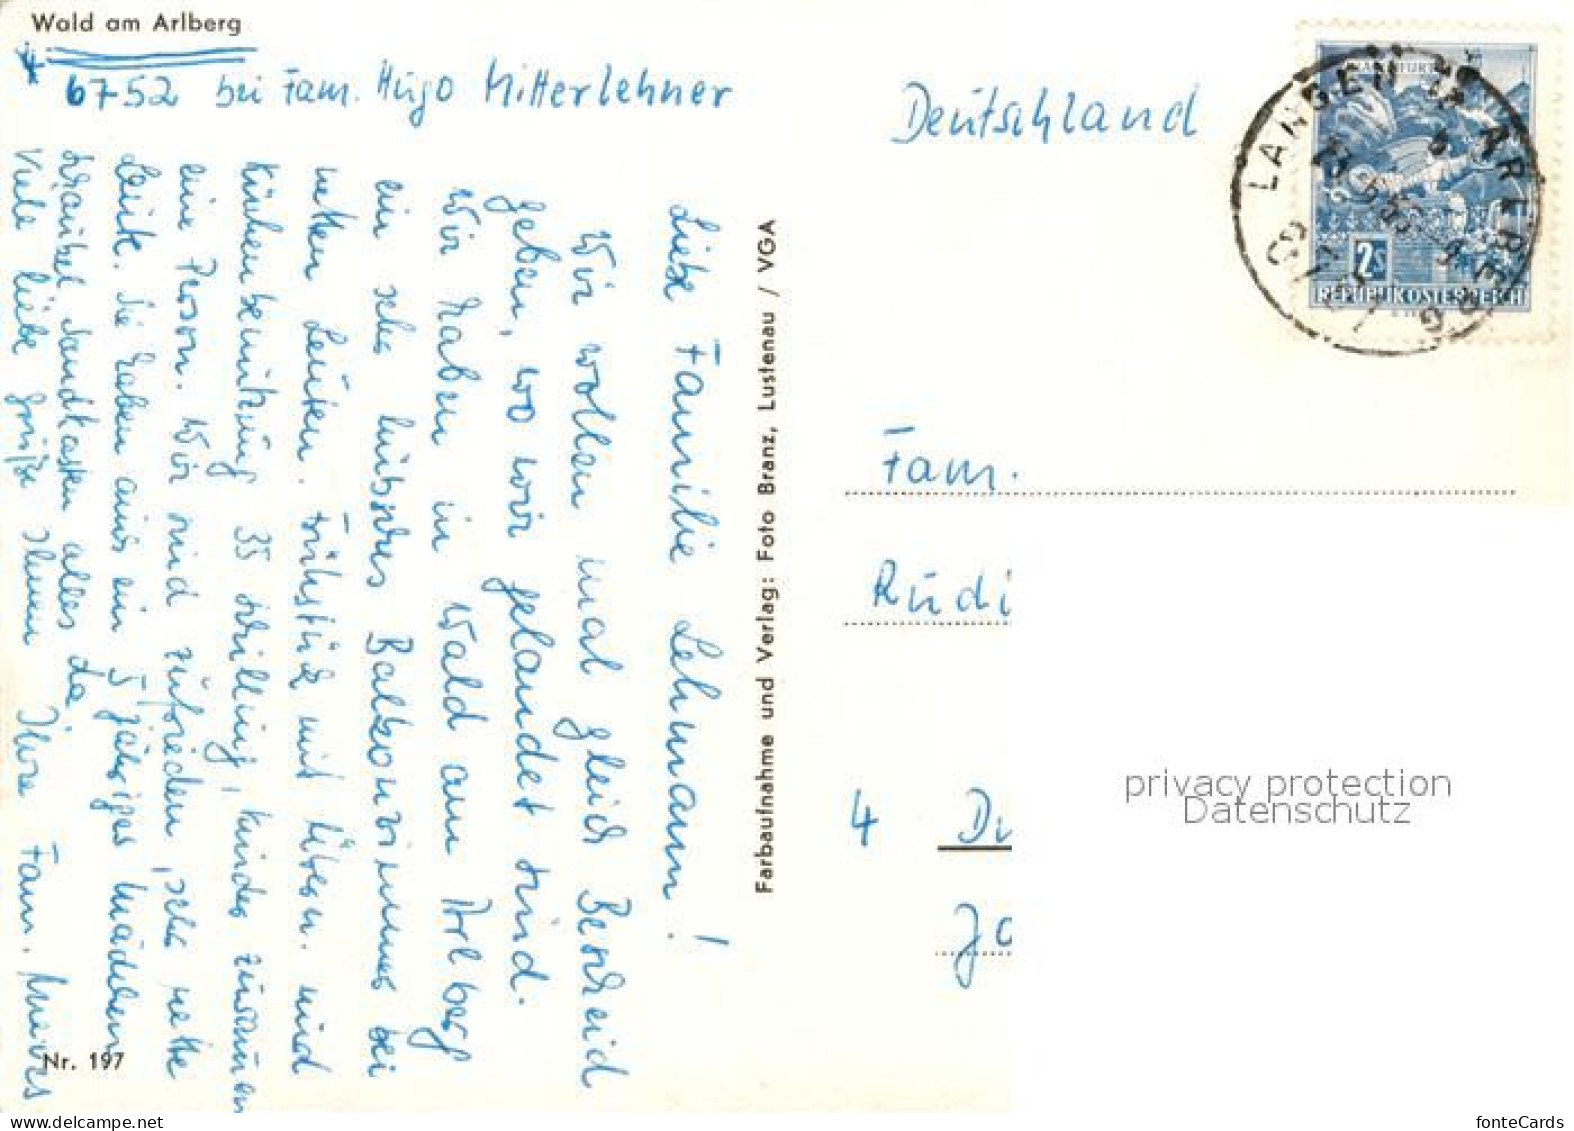 Wald am Arlberg
* 6752 bei Fam. Hugo Mitterlehner
Liebe Familie Lehmann!
Wir wollen mal gleich Bescheid
geben, wo wir gelandet sind.
Wir haben in Wald am Arlberg
ein sehr hübsches Balkonzimmer bei
netten Leuten. Frühstück mit
und
Küchenbenutzung 35 Schilling, Kinder zusammen
eine Person. Wir sind zufrieden, sehr nette
Leute. Sie haben auch ein 5 jähriges Mädchen
Schaukel Sandkasten alles da.
Viele liebe Grüße Ihnen Ihre Fam.
Nr. 197
Farbaufnahme und Verlag: Foto Branz, Lustenau / VGA
Deutschland
LANGEN ARLBERG
2S
REPUBLIK ÖSTERREICH
Fam.
Rudi
4 Dü
Jo
privacy protection
Datenschutz
www.delcampe.net
fonteCards